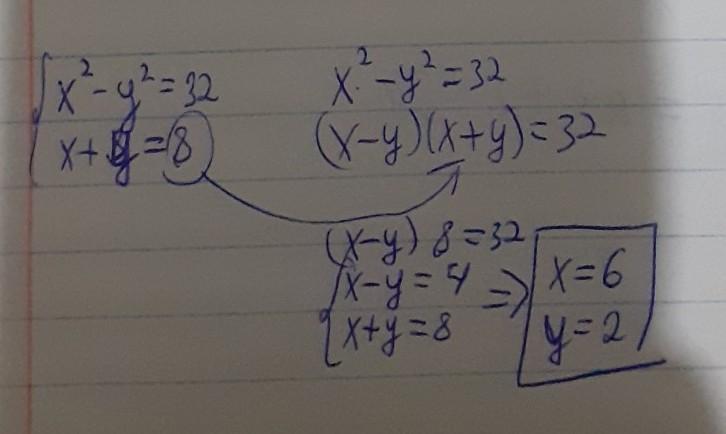 x² - y² = 32
x + y = 8
x² - y² = 32
(x - y)(x + y) = 32
(x - y) 8 = 32
x - y = 4
x + y = 8
⇒ x = 6
y = 2